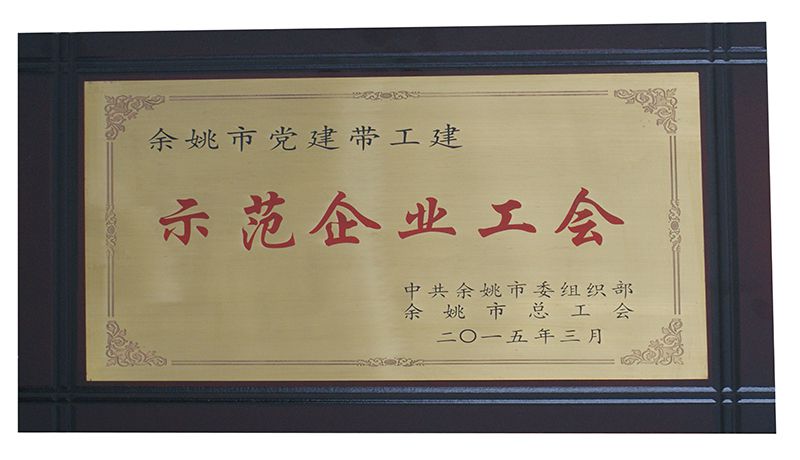 余姚市党建带工建
示范企业工会
中共余姚市委组织部
余姚市总工会
二〇一五年三月